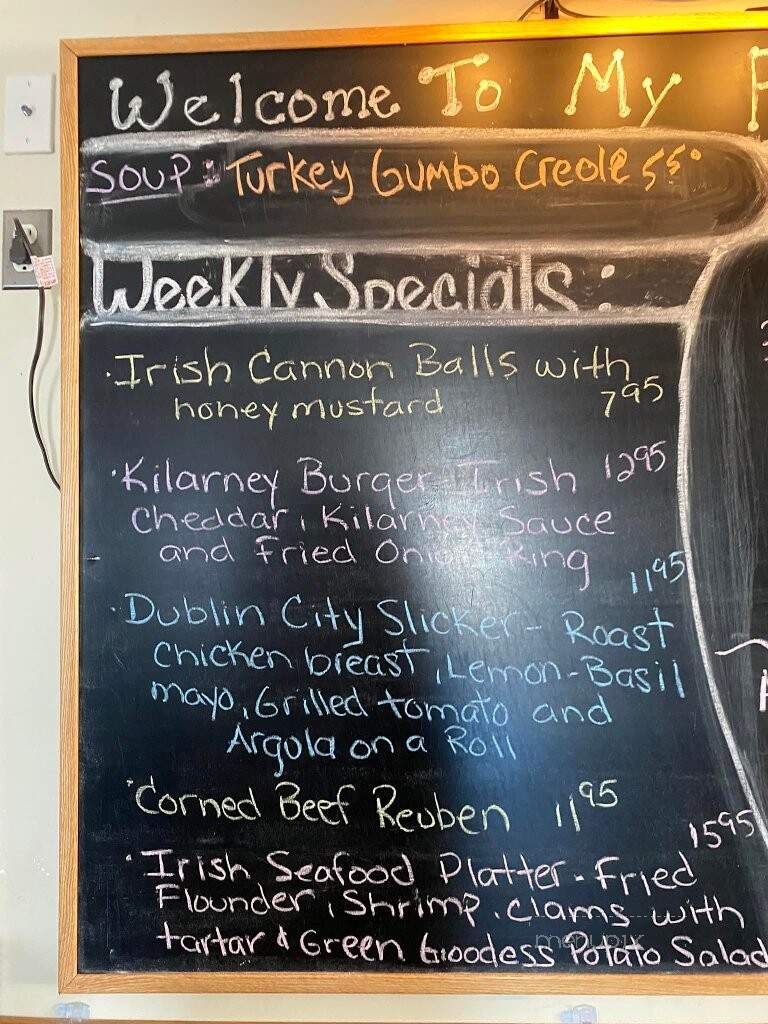 Welcome To My
SOUP: Turkey Gumbo Creole 5⁵⁰
Weekly Specials:
·Irish Cannon Balls with
honey mustard 7⁹⁵
·Kilarney Burger Irish 12⁹⁵
Cheddar, Kilarney Sauce
and Fried Onion Ring
11⁹⁵
·Dublin City Slicker - Roast
Chicken breast, Lemon-Basil
mayo, Grilled tomato and
Argula on a Roll
·Corned Beef Reuben 11⁹⁵
15⁹⁵
·Irish Seafood Platter - Fried
Flounder, Shrimp, clams with
tartar & Green Goodess Potato Salad
menupix